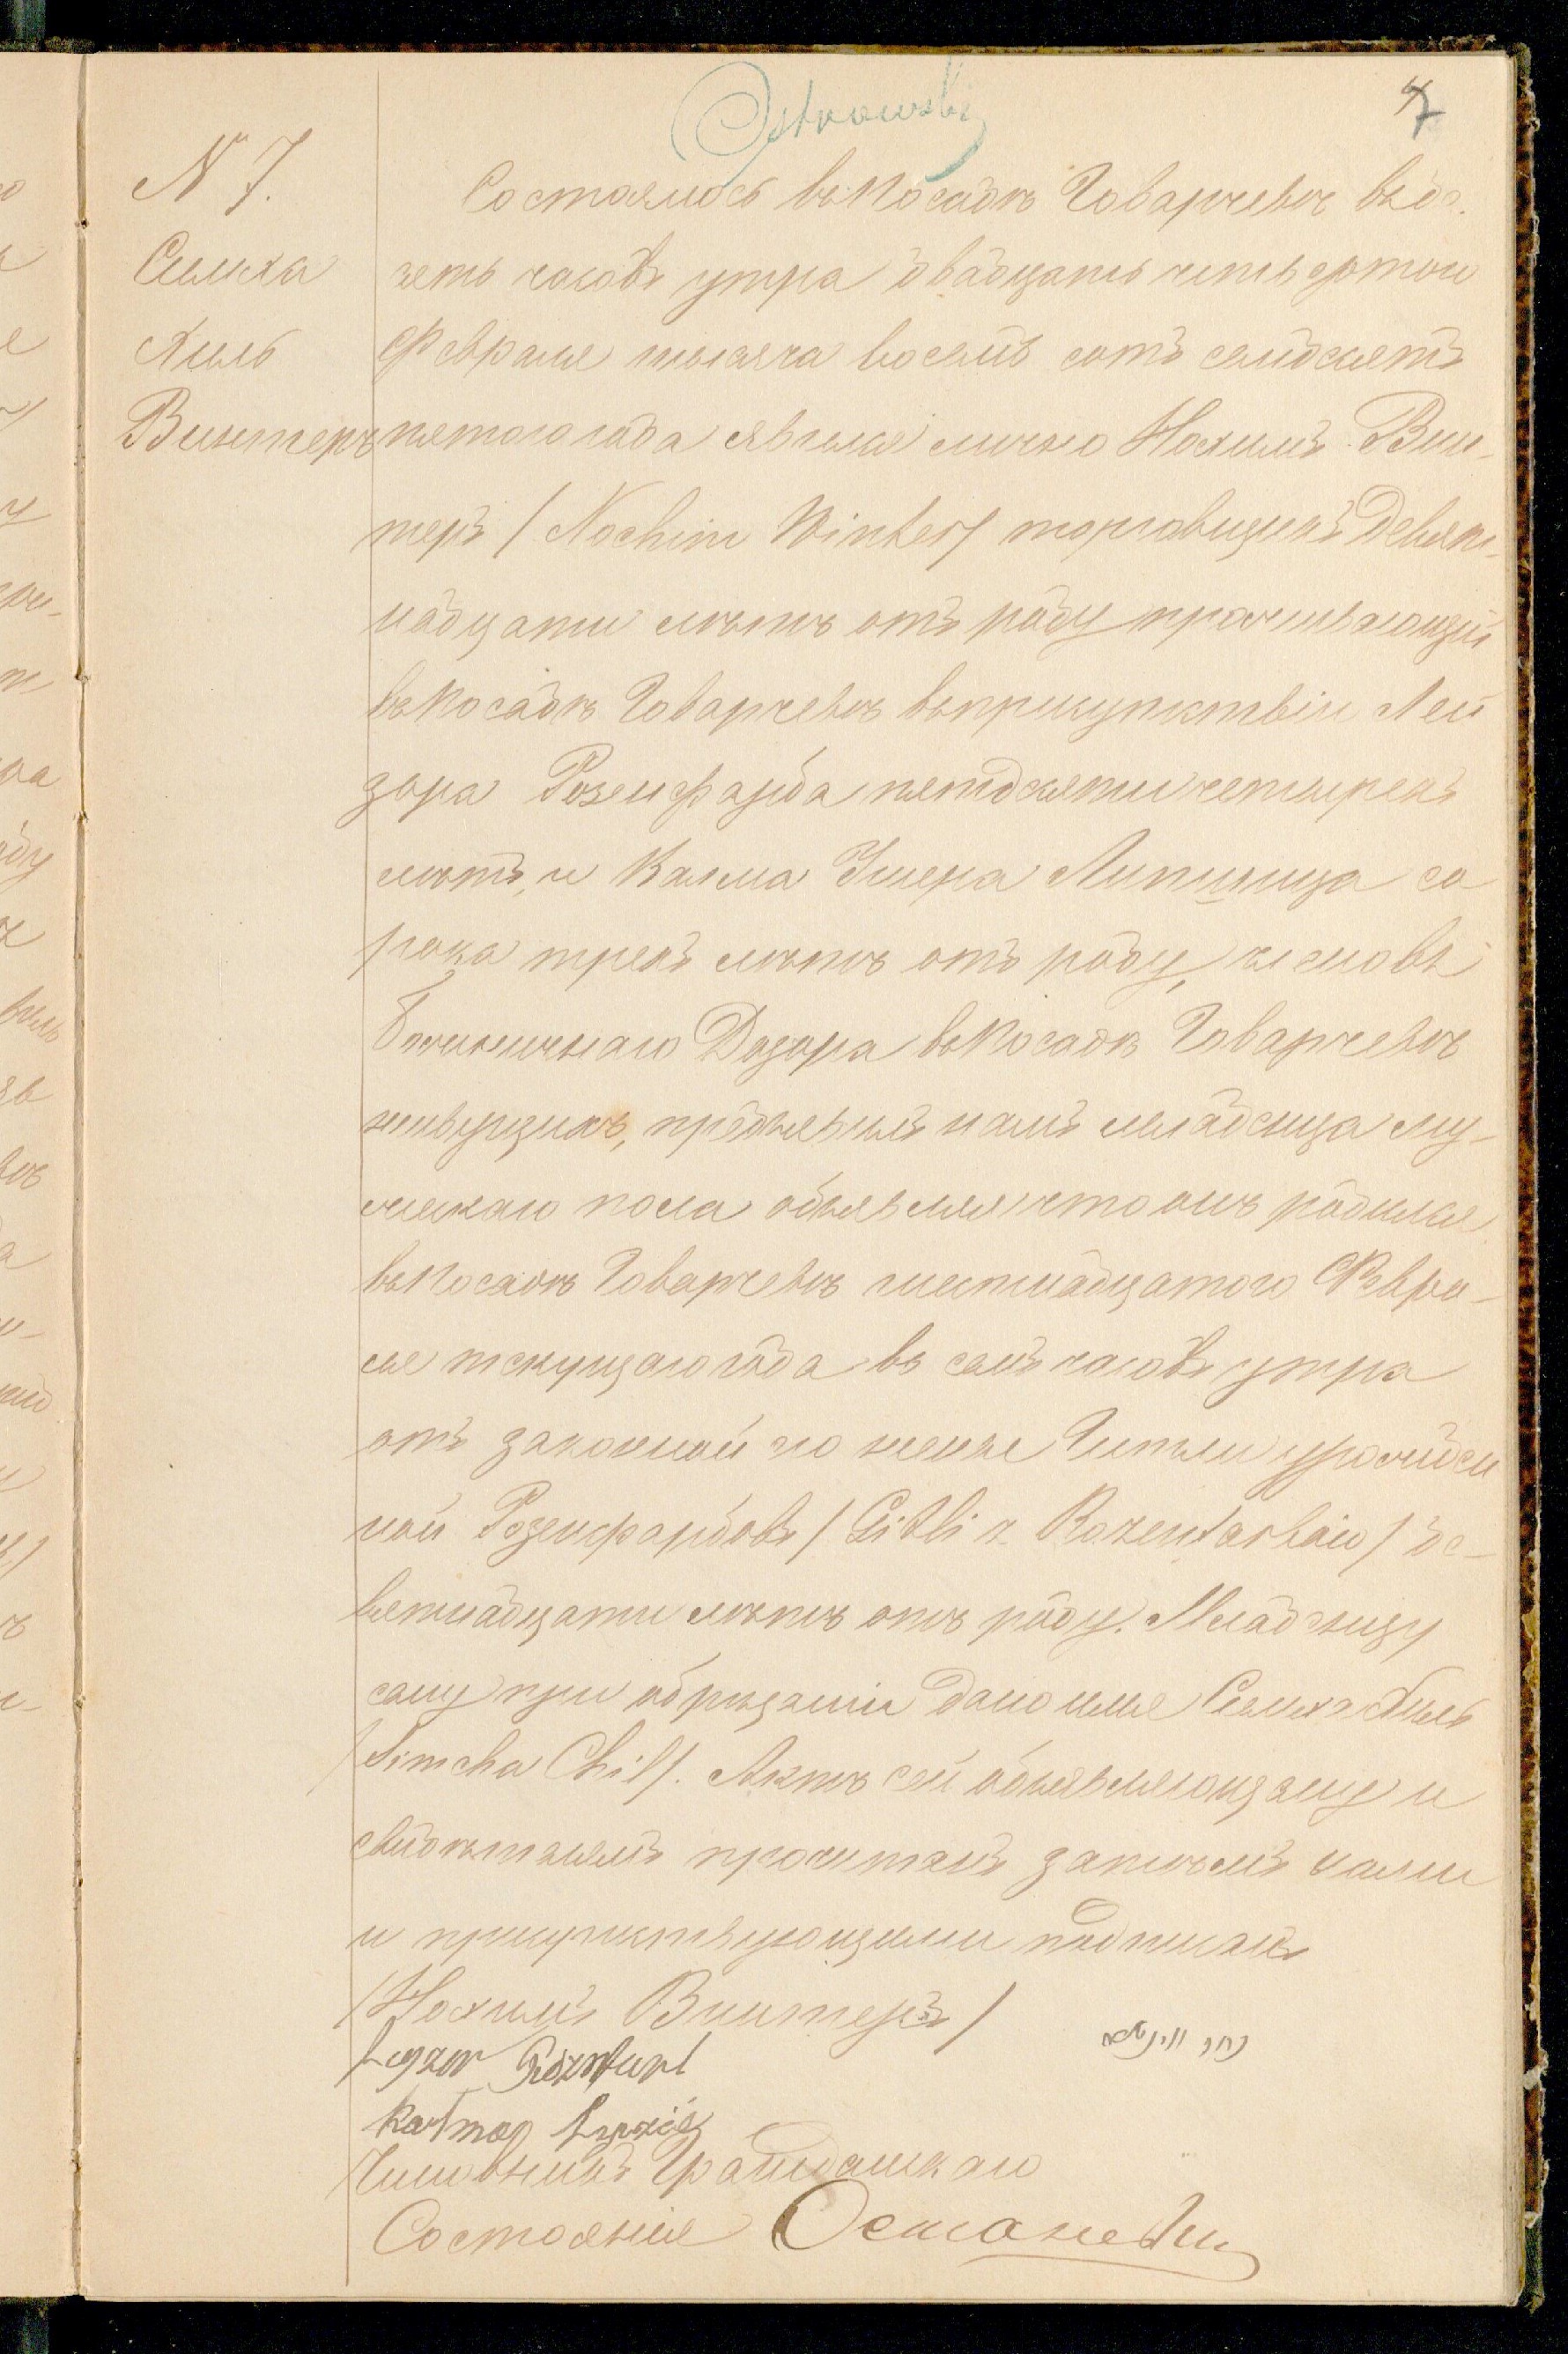 Ostrowski
7
N 7.
Симха
Хиль
Винтеръ
Состоялось въ Посадѣ Говарчевѣ въ де-
сять часовъ утра двадцать четвертого
Февраля тысяча восемь сотъ семдесятъ
пятого года явился лично Нохимъ Вин-
теръ / Nochim Winter / торговщикъ девят-
надцати лѣтъ отъ роду проживающій
въ Посадѣ Говарчевѣ въ присутствіи Лей
зора Розенфарба пятдесяти четырехъ
лѣтъ, и Калма Ушера Липшица со
рока трехъ лѣтъ отъ роду, членовъ
Божничнаго Дозора въ Посадѣ Говарчевѣ
живущихъ, предъявилъ намъ младенца му-
жескаго пола объявляя что онъ родился
въ Посадѣ Говарчевѣ шестнадцатого Февра-
ля текущаго года въ семь часовъ утра
отъ законной го жены Гитли урожден
ной Розенфарбовъ / Gitli z Rozenfarbow / де-
вятнадцати лѣтъ отъ роду. Младенцу
сему при обрѣзаніи дано имя Симха Хиль
/ Simcha Chil /. Актъ сей объявляющему и
свидѣтелямъ прочитанъ затѣмъ нами
и присутствующими подписанъ
/ Нохимъ Винтеръ /
Leyzor Rozenfarb
Kalma Lipszic
Чиновникъ Гражданскаго
Состоянія